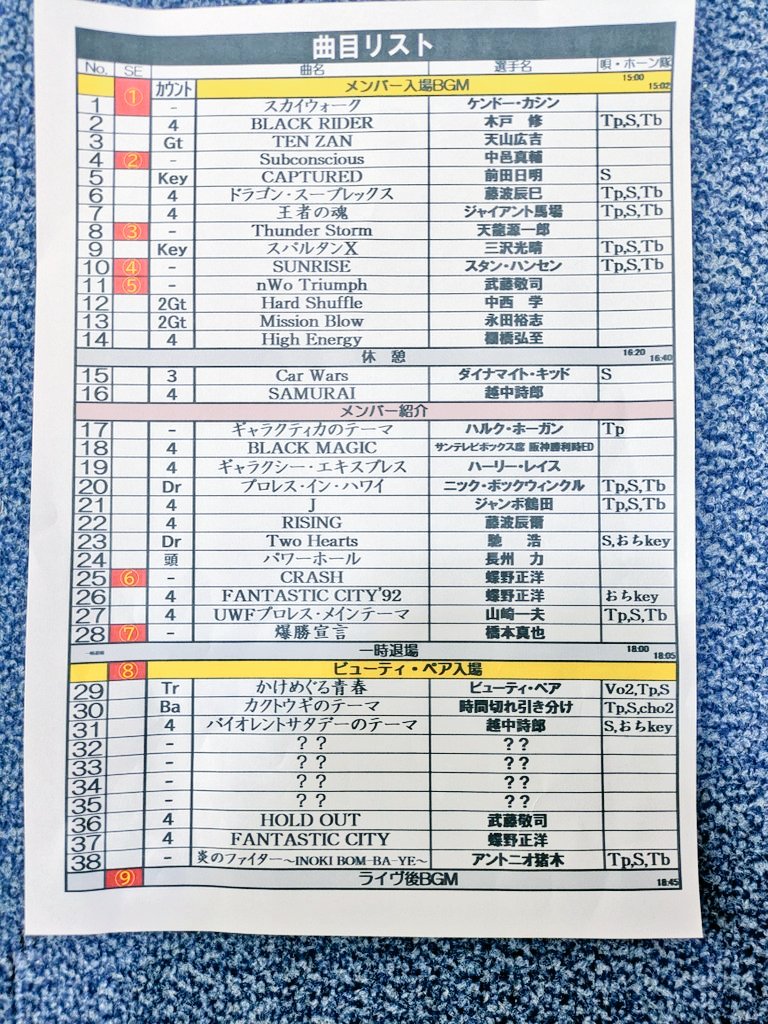 曲目リスト
No. SE カウント 曲名 選手名 唄・ホーン隊
① メンバー入場BGM 15:00 15:02
1 - スカイウォーク ケンドー・カシン
2 4 BLACK RIDER 木戸 修 Tp,S,Tb
3 Gt TEN ZAN 天山広吉
4 ② - Subconscious 中邑真輔
5 Key CAPTURED 前田日明 S
6 4 ドラゴン・スープレックス 藤波辰巳 Tp,S,Tb
7 4 王者の魂 ジャイアント馬場 Tp,S,Tb
8 ③ - Thunder Storm 天龍源一郎
9 Key スパルタンX 三沢光晴 Tp,S,Tb
10 ④ - SUNRISE スタン・ハンセン Tp,S,Tb
11 ⑤ - nWo Triumph 武藤敬司
12 2Gt Hard Shuffle 中西 学
13 2Gt Mission Blow 永田裕志
14 4 High Energy 棚橋弘至
休 憩 16:20 16:40
15 3 Car Wars ダイナマイト・キッド S
16 4 SAMURAI 越中詩郎
メンバー紹介
17 - ギャラクティカのテーマ ハルク・ホーガン Tp
18 4 BLACK MAGIC サンテレビボックス席 阪神勝利時ED
19 4 ギャラクシー・エキスプレス ハーリー・レイス
20 Dr プロレス・イン・ハワイ ニック・ボックウィンクル Tp,S,Tb
21 4 J ジャンボ鶴田 Tp,S,Tb
22 4 RISING 藤波辰爾
23 Dr Two Hearts 馳 浩 S,おちkey
24 頭 パワーホール 長州 力
25 ⑥ - CRASH 蝶野正洋
26 4 FANTASTIC CITY'92 蝶野正洋 おちkey
27 4 UWFプロレス・メインテーマ 山崎一夫 Tp,S,Tb
28 ⑦ - 爆勝宣言 橋本真也
一時退場 18:00 18:05
⑧ ビューティ・ペア入場
29 Tr かけめぐる青春 ビューティ・ペア Vo2,Tp,S
30 Ba カクトウギのテーマ 時間切れ引き分け Tp,S,cho2
31 4 バイオレントサタデーのテーマ 越中詩郎 S,おちkey
32 - ？？ ？？
33 - ？？ ？？
34 - ？？ ？？
35 - ？？ ？？
36 4 HOLD OUT 武藤敬司
37 4 FANTASTIC CITY 蝶野正洋
38 - 炎のファイター～INOKI BOM-BA-YE～ アントニオ猪木 Tp,S,Tb
⑨ ライヴ後BGM 18:45